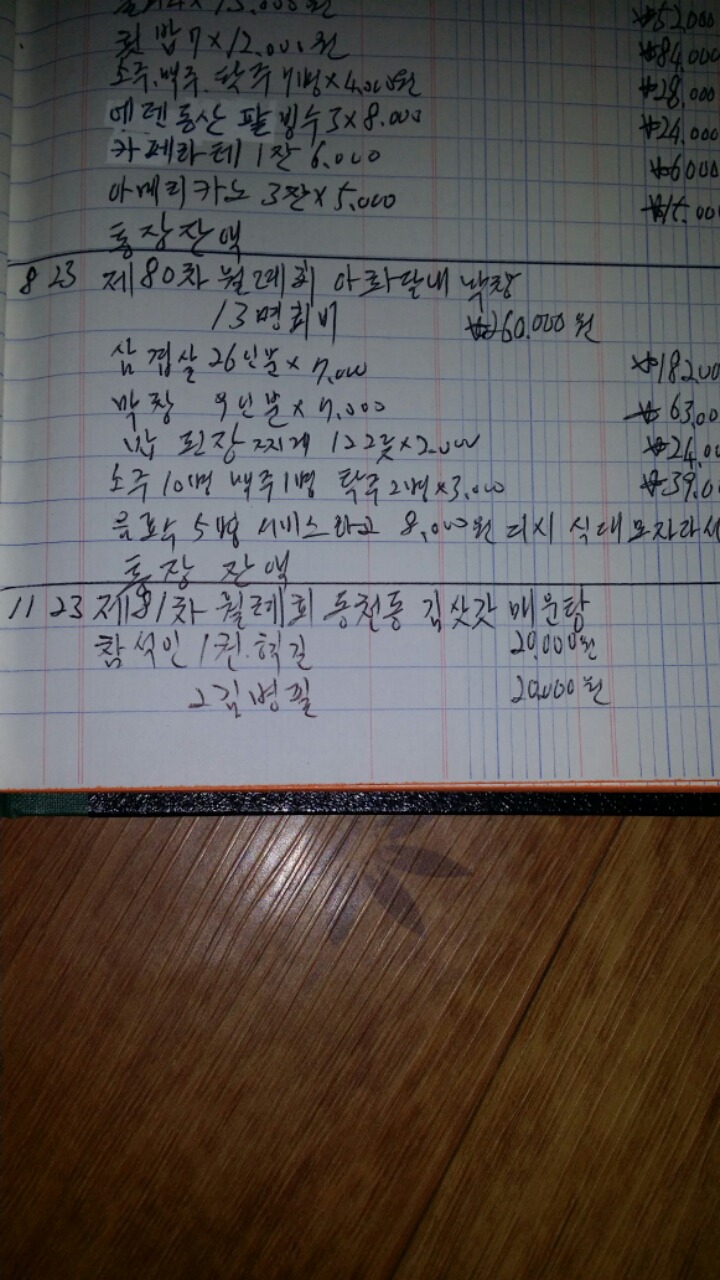 4×13.000원 ₩52.000
밥 7×12.000원 ₩84.000
소주.맥주.탁주 7병×4.000원 ₩28.000
에덴동산 팥빙수 3×8.000 ₩24.000
카페라테 1잔 6.000 ₩6000
아메리카노 3잔×5.000 ₩15.000
통장잔액
8 23 제80차 월례회 아화달내 막창
13명회비 ₩260.000원
삼겹살 26인분×7.000 ₩182.00
막창 9인분×7.000 ₩63.00
밥 된장찌개 12그릇×2.000 ₩24.00
소주 10병 맥주1병 탁주2병×3.000 ₩39.0
음료수 5병 서비스라고 8,000원 디시 식대 모자라서
통장 잔액
11 23 제81차 월례회 동천동 김삿갓 매운탕
참석인 1 권.혁길 20.000원
2 김병필 20.000원